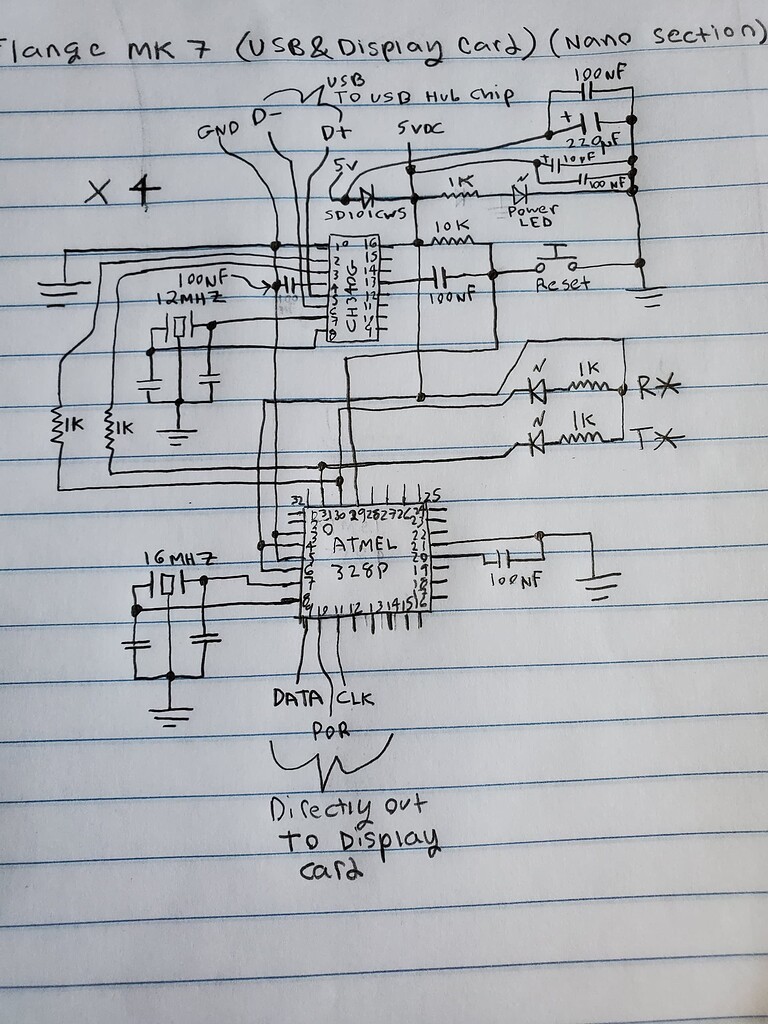 Flange MK 7 (USB&Display Card) (Nano Section)
USB
TO USB Hub Chip
GND
D-
D+
5VDC
5V
100NF
+
220µF
+
10µF
100NF
X 4
SD101CWS
1K
Power
LED
10K
100NF
Reset
100NF
12MHZ
CH340G
1 2 3 4 5 6 7 8
16 15 14 13 12 11
1K
1K
1K
RX
1K
TX
32 31 30 29 28 27 26 25
ATMEL
328P
16MHZ
100NF
22 21 20 19 18
9 10 11 12 13 14 15 16
DATA
CLK
POR
Directly out
To Display
card